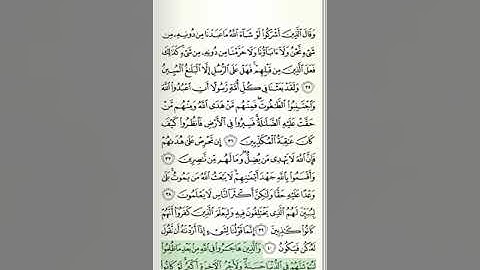 وَقَالَ الَّذِينَ أَشْرَكُوا لَوْ شَاءَ اللَّهُ مَا عَبَدْنَا مِن دُونِهِ مِن
شَيْءٍ نَّحْنُ وَلَا ءَابَاؤُنَا وَلَا حَرَّمْنَا مِن دُونِهِ مِن شَيْءٍ كَذَٰلِكَ
فَعَلَ الَّذِينَ مِن قَبْلِهِمْ فَهَلْ عَلَى الرُّسُلِ إِلَّا الْبَلَاغُ الْمُبِينُ
٣٥ وَلَقَدْ بَعَثْنَا فِي كُلِّ أُمَّةٍ رَّسُولًا أَنِ اعْبُدُوا اللَّهَ
وَاجْتَنِبُوا الطَّاغُوتَ فَمِنْهُم مَّنْ هَدَى اللَّهُ وَمِنْهُم مَّنْ
حَقَّتْ عَلَيْهِ الضَّلَالَةُ فَسِيرُوا فِي الْأَرْضِ فَانظُرُوا كَيْفَ
كَانَ عَاقِبَةُ الْمُكَذِّبِينَ ٣٦ إِن تَحْرِصْ عَلَىٰ هُدَاهُمْ
فَإِنَّ اللَّهَ لَا يَهْدِي مَن يُضِلُّ وَمَا لَهُم مِّن نَّاصِرِينَ ٣٧
وَأَقْسَمُوا بِاللَّهِ جَهْدَ أَيْمَانِهِمْ لَا يَبْعَثُ اللَّهُ مَن يَمُوتُ بَلَىٰ
وَعْدًا عَلَيْهِ حَقًّا وَلَٰكِنَّ أَكْثَرَ النَّاسِ لَا يَعْلَمُونَ ٣٨
لِيُبَيِّنَ لَهُمُ الَّذِي يَخْتَلِفُونَ فِيهِ وَلِيَعْلَمَ الَّذِينَ كَفَرُوا أَنَّهُمْ
كَانُوا كَاذِبِينَ ٣٩ إِنَّمَا قَوْلُنَا لِشَيْءٍ إِذَا أَرَدْنَاهُ أَن نَّقُولَ
لَهُ كُن فَيَكُونُ ٤٠ وَالَّذِينَ هَاجَرُوا فِي اللَّهِ مِن بَعْدِ مَا ظُلِمُوا
لَنُبَوِّئَنَّهُمْ فِي الدُّنْيَا حَسَنَةً وَلَأَجْرُ الْآخِرَةِ أَكْبَرُ لَوْ كَانُوا